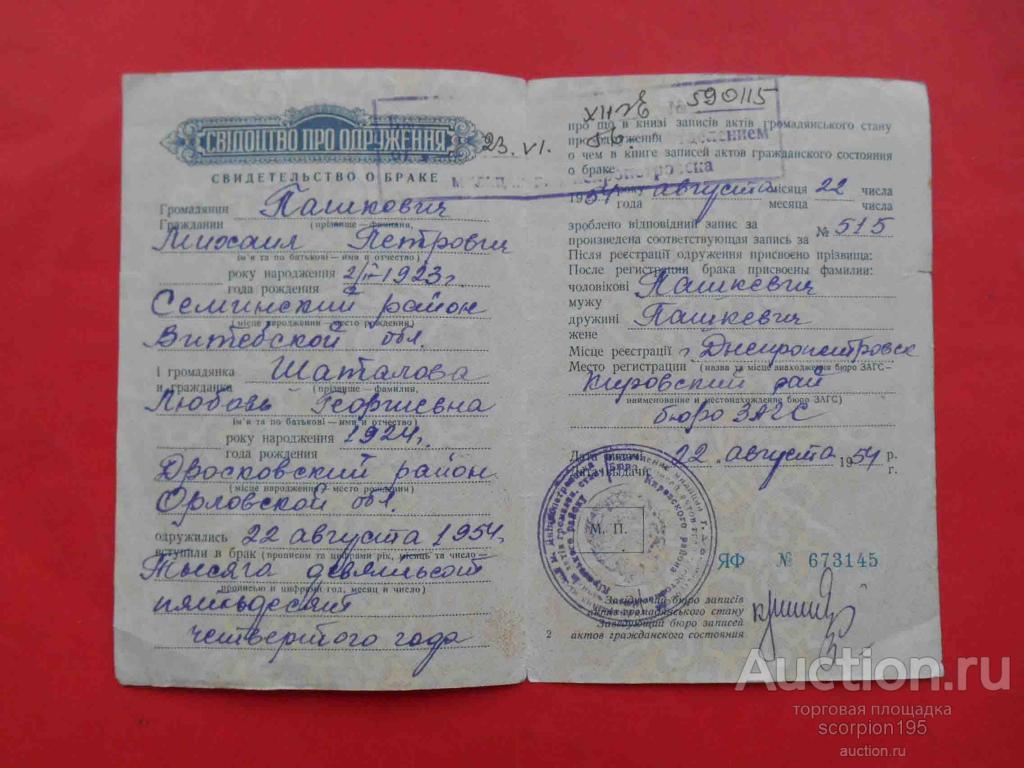 СВІДОЦТВО ПРО ОДРУЖЕННЯ
СВИДЕТЕЛЬСТВО О БРАКЕ
23.VI.
Громадянин Пашкович
Гражданин (прізвище — фамилия,
Михаил Петрович
(ім'я та по батькові — имя и отчество)
року народження 2/II-1923 г.
года рождения
Семинский район
(місце народження — место рождения)
Витебской обл.
і громадянка Шаталова
и гражданка (прізвище — фамилия,
Любовь Георгиевна
(ім'я та по батькові — имя и отчество)
року народження 1924 г.
года рождения
Дросковский район
(місце народження — место рождения)
Орловской обл.
одружились 22 августа 1954
вступили в брак (прописом та цифрами рік, місяць та число —
Тысяча девятьсот
прописью и цифрами год, месяц и число)
пятьдесят
четвертого года
590115
про що в книзі записів актів громадянського стану
про одруження
о чем в книге записей актов гражданского состояния
о браке
1954 року августа місяця 22 числа
года месяца числа
зроблено відповідний запис за
произведена соответствующая запись за № 515
Після реєстрації одруження присвоєно прізвища:
После регистрации брака присвоены фамилии:
чоловікові Пашкевич
мужу
дружині Пашкевич
жене
Місце реєстрації г Днепропетровск
Место регистрации (назва та місце знаходження бюро ЗАГС —
Кировский рай
наименование и местонахождение бюро ЗАГС)
бюро ЗАГС
Дата видачі 22 августа 1954 р.
Дата выдачи г.
М. П.
ЯФ № 673145
Завідуючий бюро записів
актів громадянського стану
Заведующий бюро записей
актов гражданского состояния
2
Auction.ru
торговая площадка
scorpion195
auction.ru